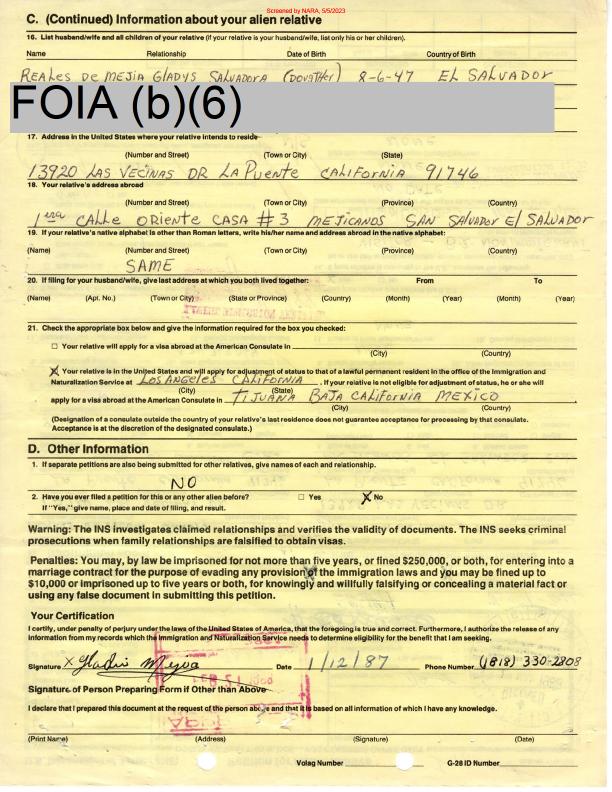 Screened by NARA, 5/5/2023
C. (Continued) Information about your alien relative
16. List husband/wife and all children of your relative (if your relative is your husband/wife, list only his or her children).
Name Relationship Date of Birth Country of Birth
REALES DE MEJIA GLADYS SALVADORA (DOUGTHER) 8-6-47 EL SALVADOR
FOIA (b)(6)
17. Address in the United States where your relative intends to reside
(Number and Street) (Town or City) (State)
13920 LAS VECINAS DR LA PUENTE CALIFORNIA 91746
18. Your relative's address abroad
(Number and Street) (Town or City) (Province) (Country)
1era CALLE ORIENTE CASA #3 MEJICANOS SAN SALVADOR El SALVADOR
19. If your relative's native alphabet is other than Roman letters, write his/her name and address abroad in the native alphabet:
(Name) (Number and Street) (Town or City) (Province) (Country)
SAME
20. If filing for your husband/wife, give last address at which you both lived together: From To
(Name) (Apt. No.) (Town or City) (State or Province) (Country) (Month) (Year) (Month) (Year)
21. Check the appropriate box below and give the information required for the box you checked:
☐ Your relative will apply for a visa abroad at the American Consulate in
(City) (Country)
X Your relative is in the United States and will apply for adjustment of status to that of a lawful permanent resident in the office of the Immigration and
Naturalization Service at LOS ANGELES CALIFORNIA. If your relative is not eligible for adjustment of status, he or she will
(City) (State)
apply for a visa abroad at the American Consulate in TIJUANA BAJA CALIFORNIA MEXICO
(City) (Country)
(Designation of a consulate outside the country of your relative's last residence does not guarantee acceptance for processing by that consulate.
Acceptance is at the discretion of the designated consulate.)
D. Other Information
1. If separate petitions are also being submitted for other relatives, give names of each and relationship.
NO
2. Have you ever filed a petition for this or any other alien before? ☐ Yes X No
If "Yes," give name, place and date of filing, and result.
Warning: The INS investigates claimed relationships and verifies the validity of documents. The INS seeks criminal
prosecutions when family relationships are falsified to obtain visas.
Penalties: You may, by law be imprisoned for not more than five years, or fined $250,000, or both, for entering into a
marriage contract for the purpose of evading any provision of the immigration laws and you may be fined up to
$10,000 or imprisoned up to five years or both, for knowingly and willfully falsifying or concealing a material fact or
using any false document in submitting this petition.
Your Certification
I certify, under penalty of perjury under the laws of the United States of America, that the foregoing is true and correct. Furthermore, I authorize the release of any
information from my records which the Immigration and Naturalization Service needs to determine eligibility for the benefit that I am seeking.
Signature X Gladis Mejia Date 1/12/87 Phone Number (818) 330-2808
Signature of Person Preparing Form if Other than Above
I declare that I prepared this document at the request of the person above and that it is based on all information of which I have any knowledge.
(Print Name) (Address) (Signature) (Date)
Volag Number G-28 ID Number